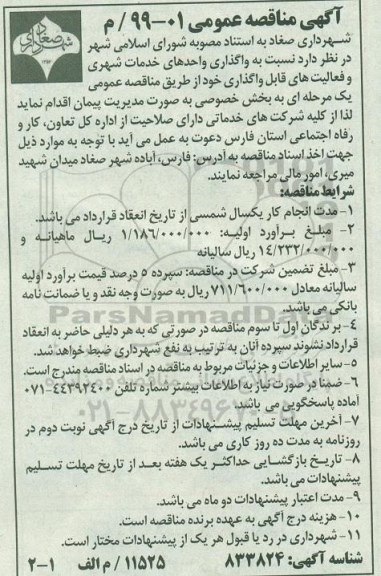 آگهی مناقصه عمومی ۰۱-۹۹ / م
شهرداری صغاد
شهرداری صغاد به استناد مصوبه شورای اسلامی شهر
در نظر دارد نسبت به واگذاری واحدهای خدمات شهری
و فعالیت های قابل واگذاری خود از طریق مناقصه عمومی
یک مرحله ای به بخش خصوصی به صورت مدیریت پیمان اقدام نماید
لذا از کلیه شرکت های خدماتی دارای صلاحیت از اداره کل تعاون، کار و
رفاه اجتماعی استان فارس دعوت به عمل می آید با توجه به موارد ذیل
جهت اخذ اسناد مناقصه به آدرس: فارس، آباده شهر صغاد میدان شهید
میری، امور مالی مراجعه نمایند.
شرایط مناقصه:
۱- مدت انجام کار یکسال شمسی از تاریخ انعقاد قرارداد می باشد.
۲- مبلغ برآورد اولیه: ۱/۱۸۶/۰۰۰/۰۰۰ ریال ماهیانه و
۱۴/۲۳۲/۰۰۰/۰۰۰ ریال سالیانه
۳- مبلغ تضمین شرکت در مناقصه: سپرده ۵ درصد قیمت برآورد اولیه
سالیانه معادل ۷۱۱/۶۰۰/۰۰۰ ریال به صورت وجه نقد و یا ضمانت نامه
بانکی می باشد.
۴- برندگان اول تا سوم مناقصه در صورتی که به هر دلیلی حاضر به انعقاد
قرارداد نشوند سپرده آنان به ترتیب به نفع شهرداری ضبط خواهد شد.
۵- سایر اطلاعات و جزئیات مربوط به مناقصه در اسناد مناقصه مندرج است.
۶- ضمنا در صورت نیاز به اطلاعات بیشتر شماره تلفن ۴۴۳۹۲۴۰۰-۰۷۱
آماده پاسخگویی می باشد.
۷- آخرین مهلت تسلیم پیشنهادات از تاریخ درج آگهی نوبت دوم در
روزنامه به مدت ده روز کاری می باشد.
۸- تاریخ بازگشایی حداکثر یک هفته بعد از تاریخ مهلت تسلیم
پیشنهادات می باشد.
۹- مدت اعتبار پیشنهادات دو ماه می باشد.
۱۰- هزینه درج آگهی به عهده برنده مناقصه است.
۱۱- شهرداری در رد یا قبول هر یک از پیشنهادات مختار است.
شناسه آگهی: ۸۳۳۸۲۴ ۱۱۵۲۵ / م الف ۱-۲
ParsNamadData
۰۲۱-۸۸۳۴۹۶۷۰